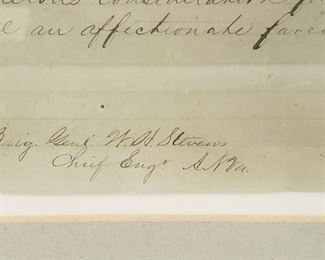 consideration for
an affectionate farew
Brig. Genl W. H. Stevens
Chief Engr A N Va.